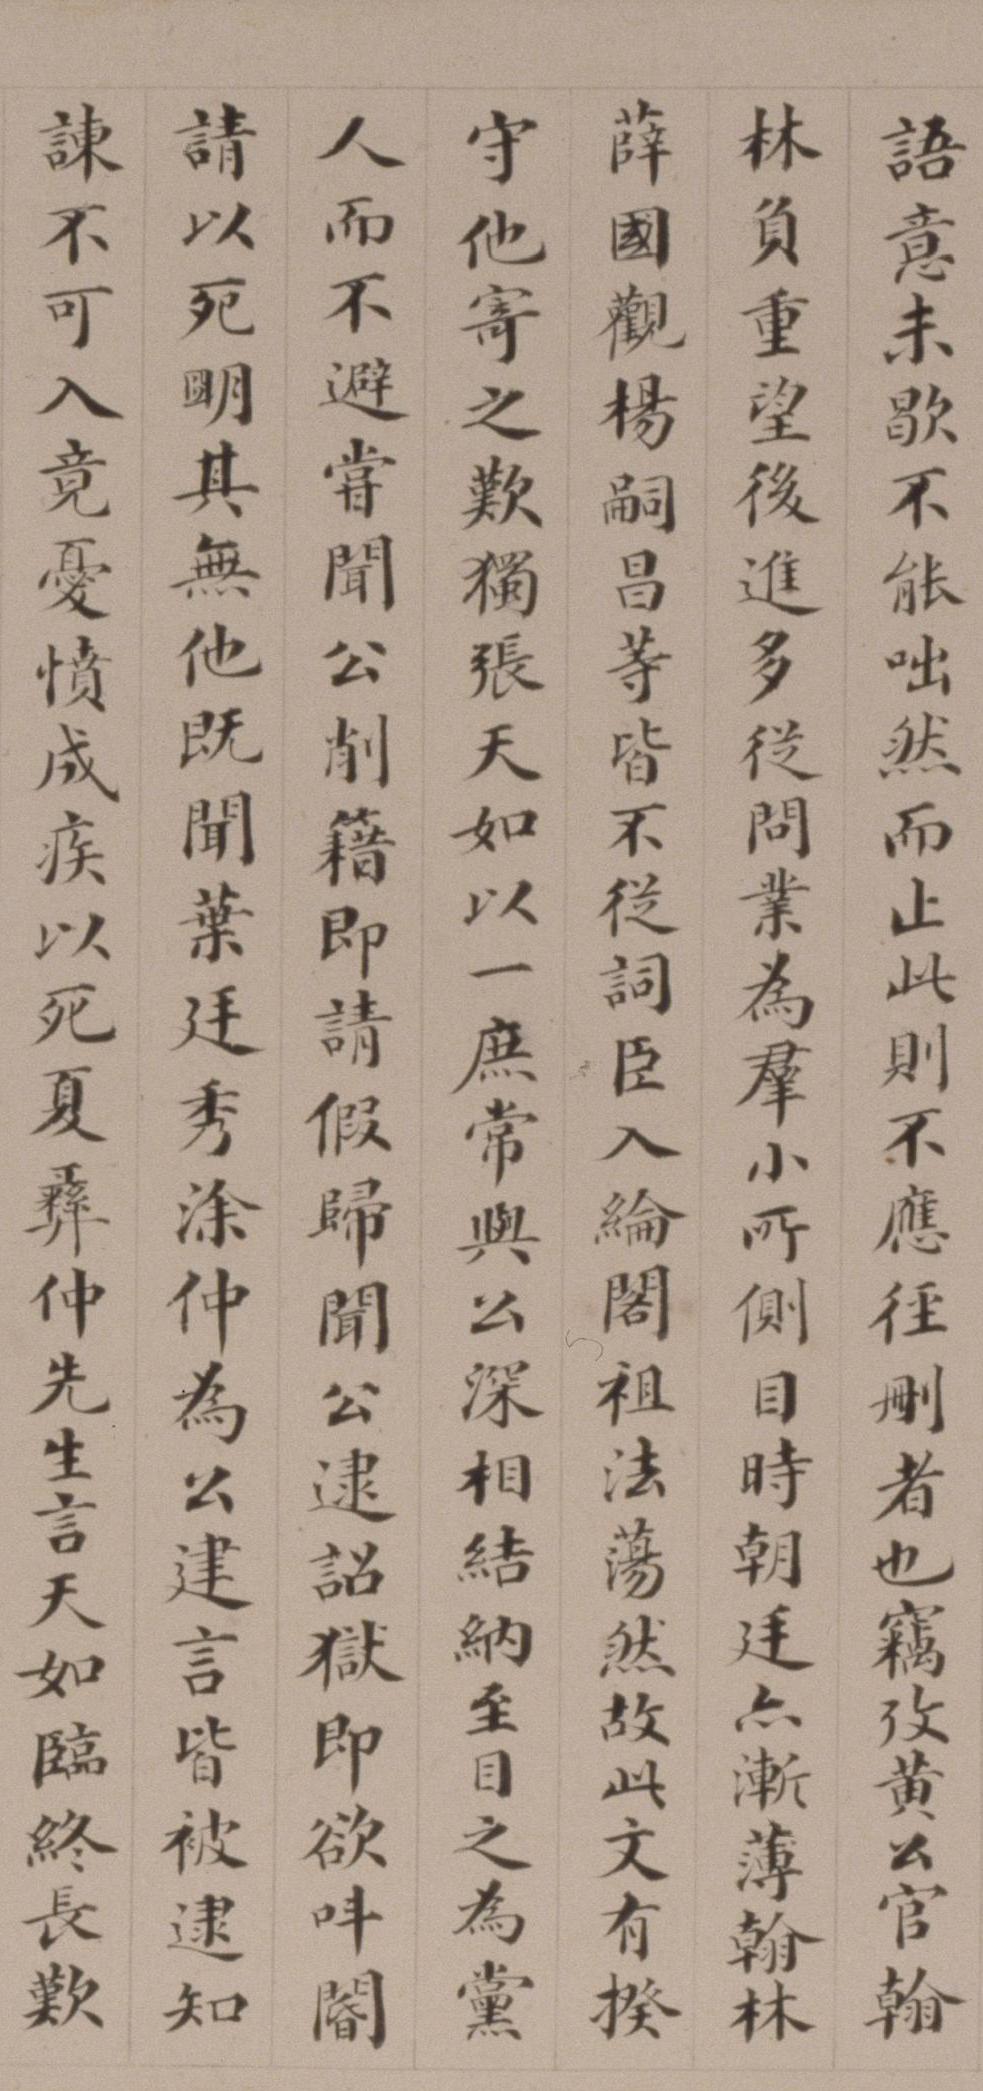 語意未歇不能咄然而止此則不應徑刪者也竊攷黃公官翰
林負重望後進多從問業為羣小所側目時朝廷亦漸薄翰林
薛國觀楊嗣昌等皆不從詞臣入綸閣祖法蕩然故此文有揆
守他寄之歎獨張天如以一庶常與公深相結納至目之為黨
人而不避嘗聞公削籍即請假歸聞公逮詔獄即欲叫閽
請以死明其無他既聞葉廷秀涂仲為公建言皆被逮知
諫不可入竟憂憤成疾以死夏彝仲先生言天如臨終長歎